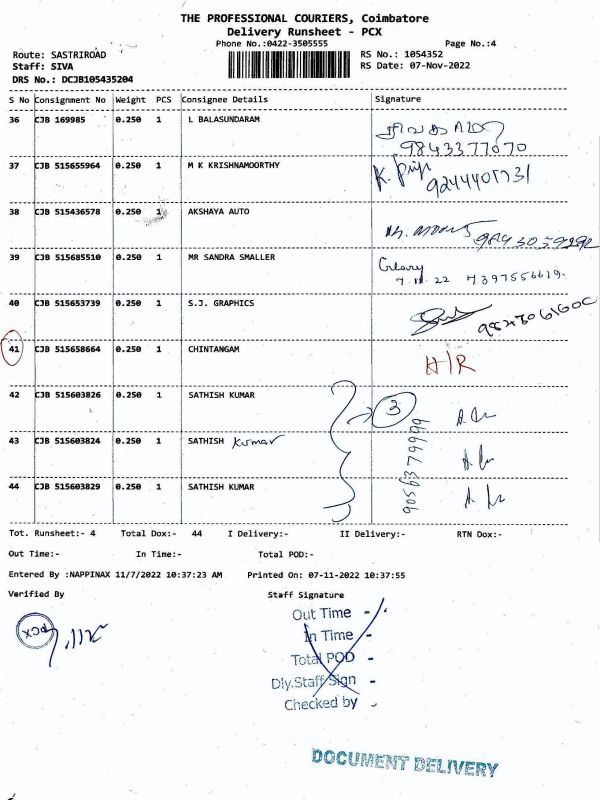 THE PROFESSIONAL COURIERS, Coimbatore
Delivery Runsheet - PCX
Phone No.:0422-3505555 Page No.:4
Route: SASTRIROAD RS No.: 1054352
Staff: SIVA RS Date: 07-Nov-2022
DRS No.: DCJB105435204
S No Consignment No Weight PCS Consignee Details Signature
36 CJB 169985 0.250 1 L BALASUNDARAM
9843377070
37 CJB 515655964 0.250 1 M K KRISHNAMOORTHY
38 CJB 515436578 0.250 1 AKSHAYA AUTO
39 CJB 515685510 0.250 1 MR SANDRA SMALLER
7397556619.
40 CJB 515653739 0.250 1 S.J. GRAPHICS
41 CJB 515658664 0.250 1 CHINTANGAM H/R
42 CJB 515603826 0.250 1 SATHISH KUMAR 3
43 CJB 515603824 0.250 1 SATHISH Kumar
9056379999
44 CJB 515603829 0.250 1 SATHISH KUMAR
Tot. Runsheet:- 4 Total Dox:- 44 I Delivery:- II Delivery:- RTN Dox:-
Out Time:- In Time:- Total POD:-
Entered By :NAPPINAX 11/7/2022 10:37:23 AM Printed On: 07-11-2022 10:37:55
Verified By Staff Signature
PCX
Out Time -
In Time -
Total POD -
Dly.Staff Sign -
Checked by -
DOCUMENT DELIVERY